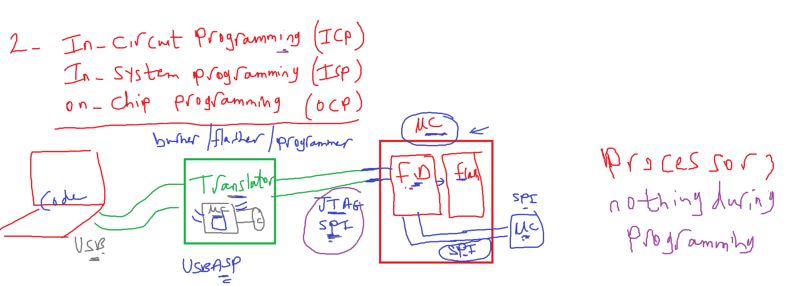 2- In-circuit programming (ICP)
In-system programming (ISP)
on-chip programming (OCP)
burner/flasher/programmer
Code
USB
Translator
MC
C
USBASP
JTAG
SPI
MC
F.D
flash
SPI
SPI
MC
Processor ;
nothing during
programming